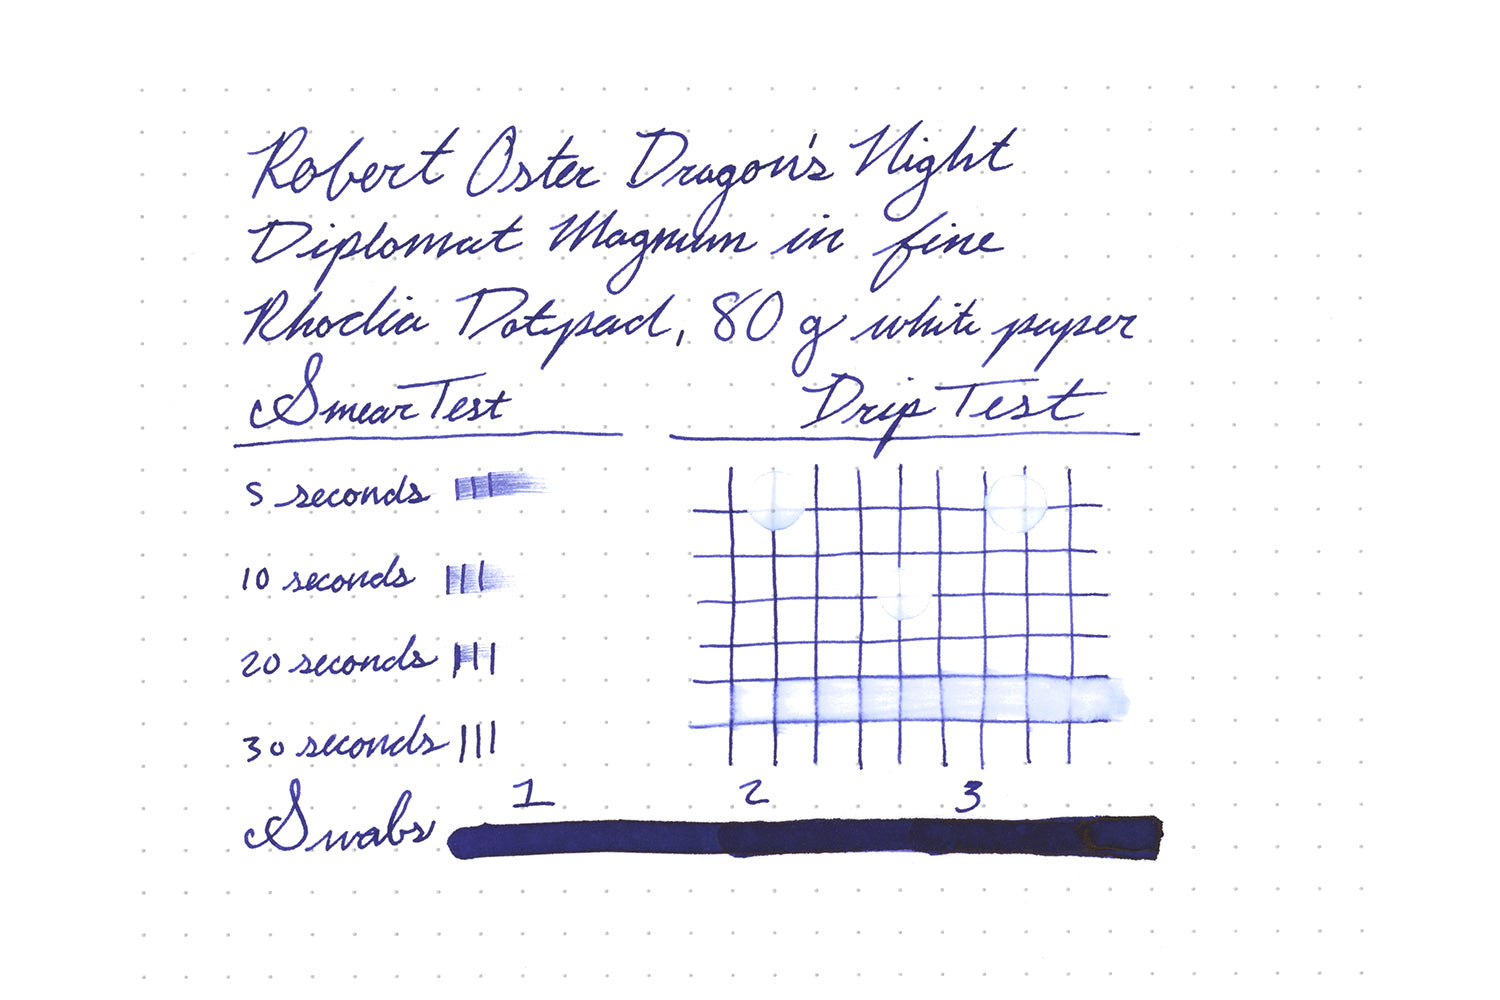 Robert Oster Dragon's Night
Diplomat Magnum in fine
Rhodia Dotpad, 80 g white paper
Smear Test
Drip Test
5 seconds
10 seconds
20 seconds
30 seconds
1 2 3
Swabs